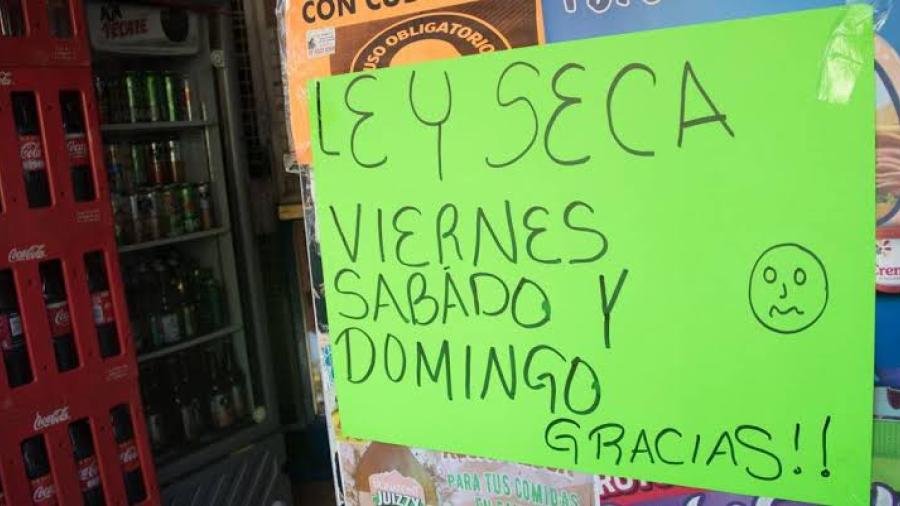 TECATE
CON CU
USO OBLIGATORIO
LEY SECA
VIERNES
SABÁDO Y
DOMINGO
GRACIAS!!
Coca-Cola
Coca-Cola
Coca-Cola
JUIZZY
PARA TUS COMIDAS